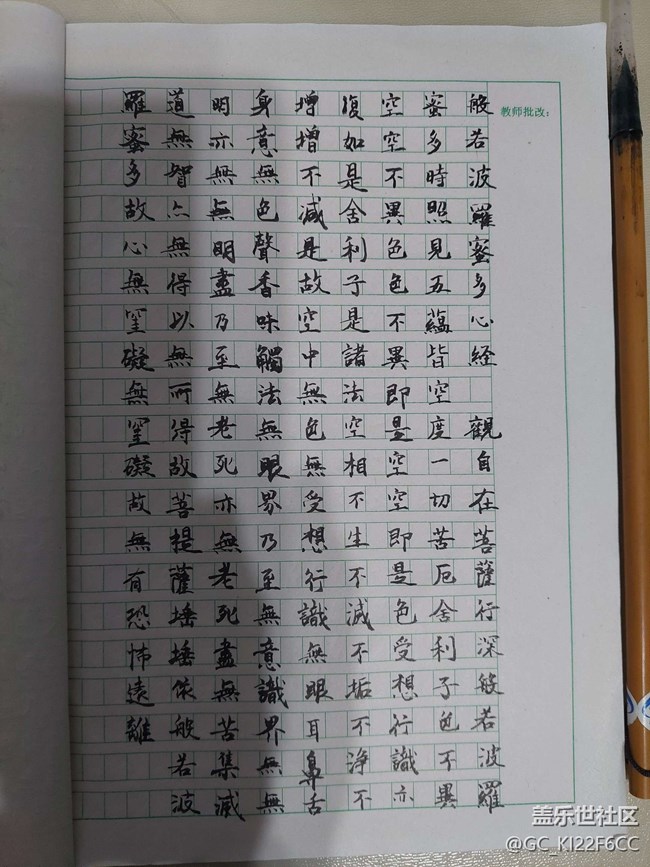 般若波羅蜜多心經 觀自在菩薩行深般若波羅
蜜多時照見五蘊皆空度一切苦厄舍利子色不異
空空不異色色不異即是空空即是色受想行識亦
復如是舍利子是諸法空相不生不滅不垢不淨不
增增不減是故空中無色無受想行識無眼耳鼻舌
身意無色聲香味觸法無眼界乃至無意識界無無
明亦無無明盡乃至無老死亦無老死盡無苦集滅
道無智亦無得以無所得故菩提薩埵埵依般若波
羅蜜多故心無罣礙無罣礙故無有恐怖遠離
教师批改：
盖乐世社区
@GC_KI22F6CC